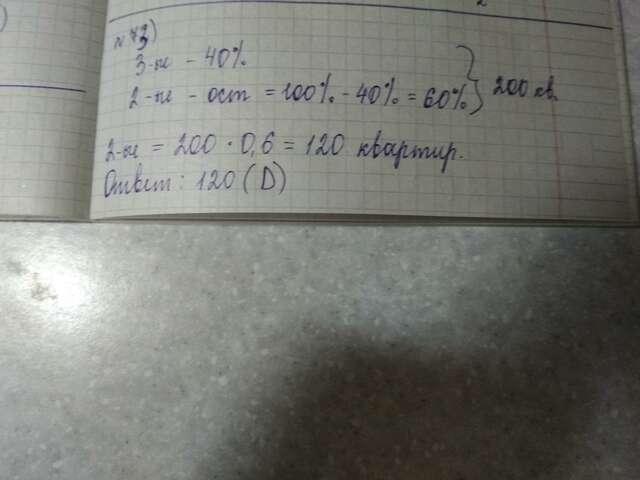 №73)
3-ые - 40%
2-ые - ост = 100% - 40% = 60% } 200 кв
2-ые = 200 · 0,6 = 120 квартир.
Ответ: 120 (D)